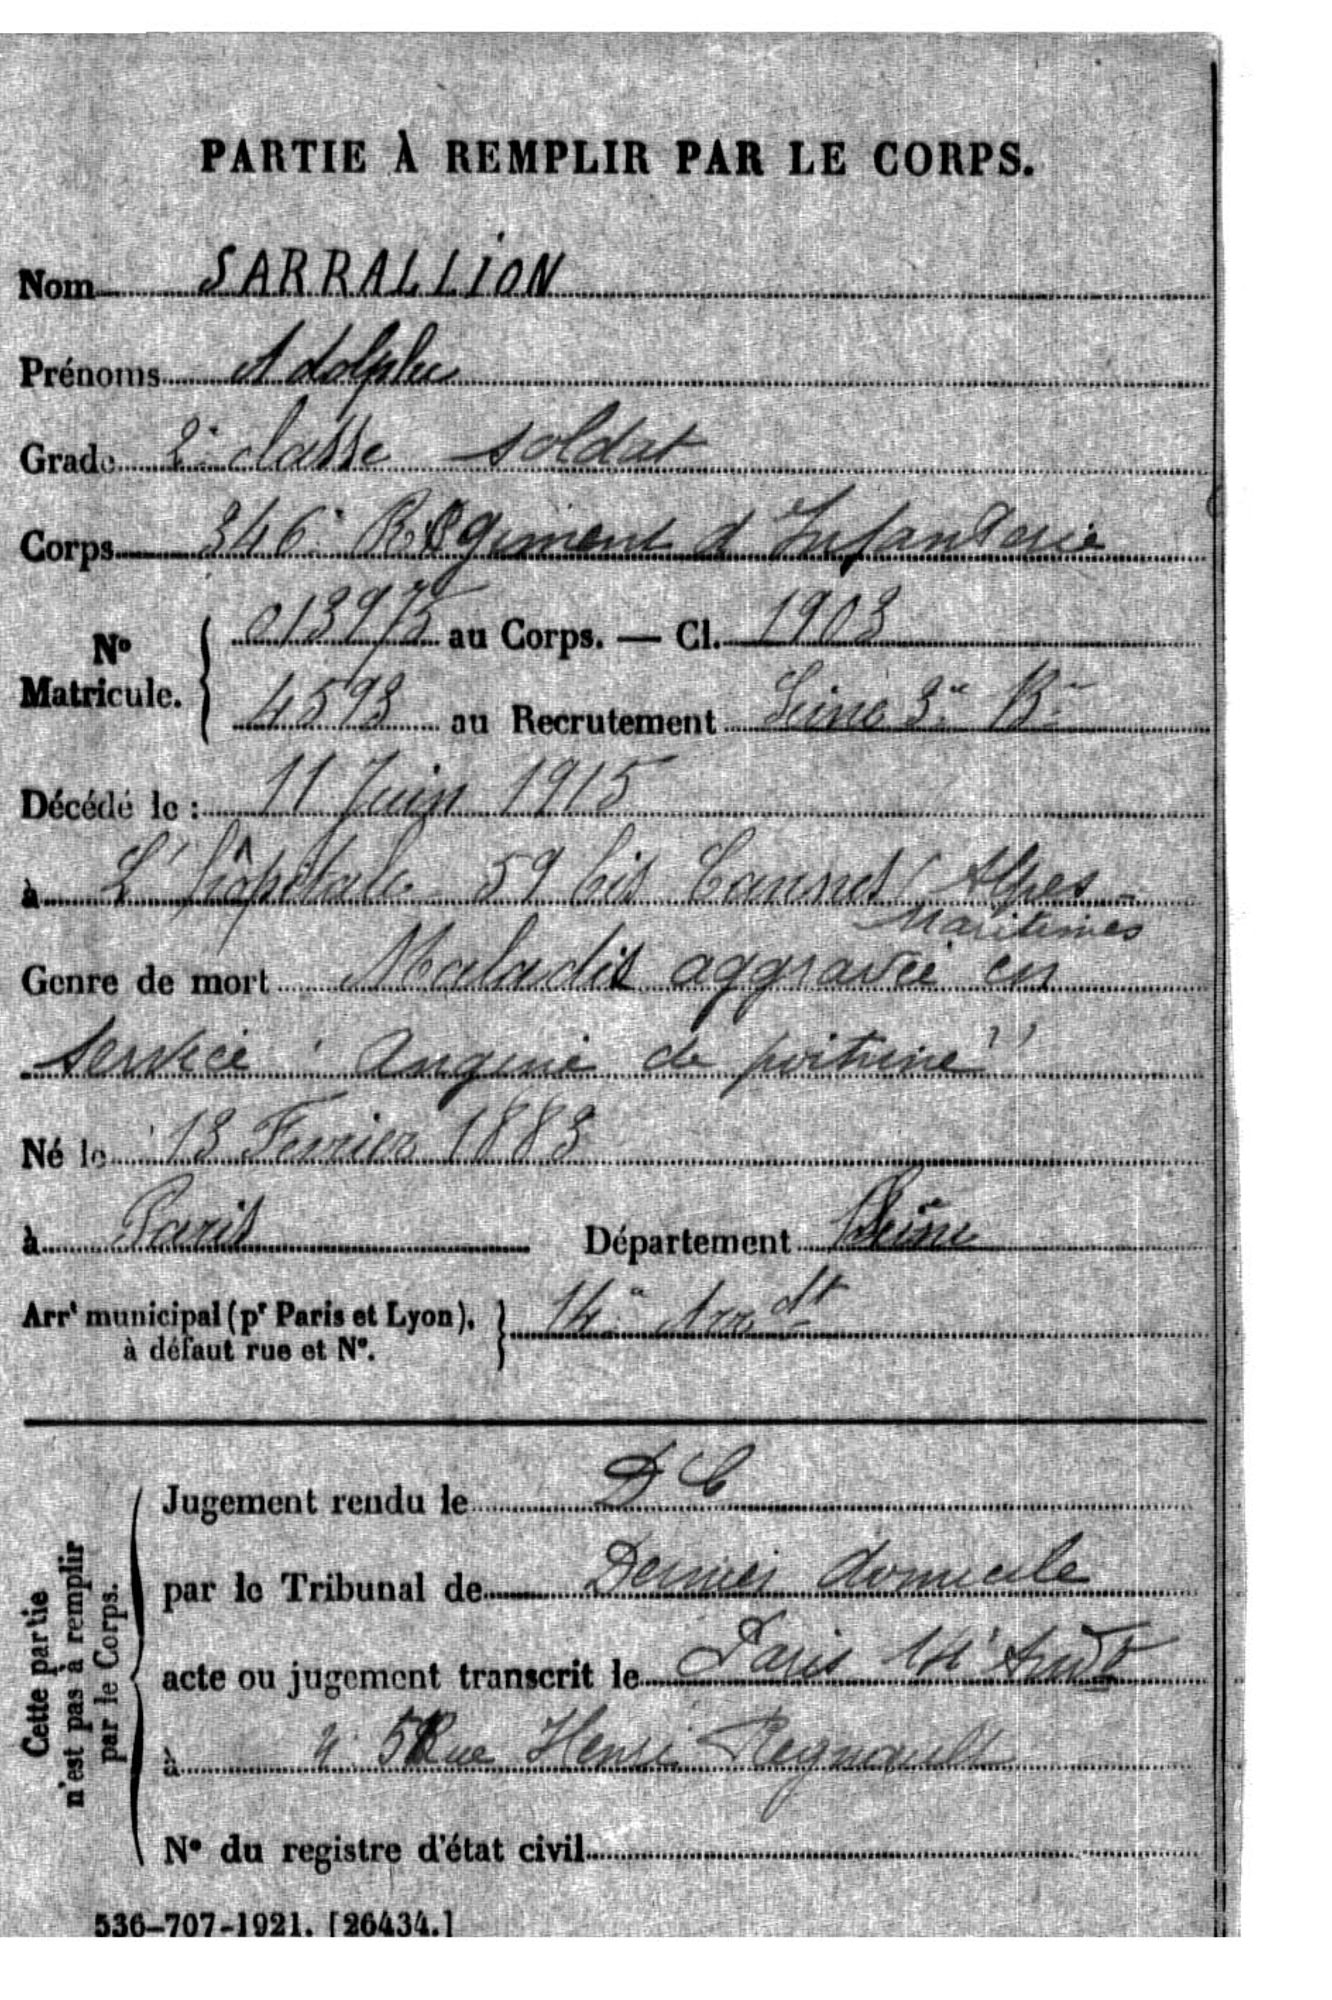 PARTIE À REMPLIR PAR LE CORPS.
Nom SARRALLION
Prénoms Adolphe
Grade 2e classe soldat
Corps 346e Régiment d'Infanterie
No Matricule. { 013975 au Corps. — Cl. 1903
4593 au Recrutement Seine 3e Bau
Décédé le : 11 Juin 1915
à L'hôpitale 59 bis Cannes (Alpes-
Maritimes
Genre de mort Maladie aggravée en
service "angine de poitrine"
Né le 13 Fevrier 1883
à Paris Département Seine
Arrt municipal (pr Paris et Lyon), } 14e Arrdt
à défaut rue et No.
Cette partie
n'est pas à remplir
par le Corps.
Jugement rendu le DC
par le Tribunal de Dernier domicile
acte ou jugement transcrit le Paris 14e Arrdt
à Rue Henri Regnault
No du registre d'état civil
536-707-1921. [26434.]